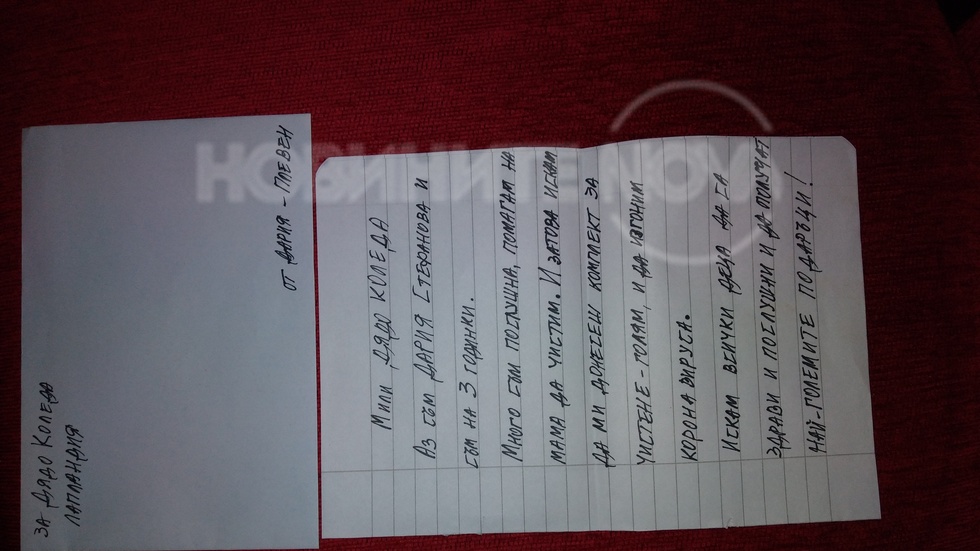 ЗА ДЯДО КОЛЕДА
ЛАПЛАНДИЯ
ОТ ДАРИЯ - ПЛЕВЕН
МИЛИ ДЯДО КОЛЕДА
АЗ СЪМ ДАРИЯ СТЕФАНОВА И
СЪМ НА 3 ГОДИНКИ.
МНОГО СЪМ ПОСЛУШНА, ПОМАГАМ НА
МАМА ДА ЧИСТИМ. И ЗАТОВА ИСКАМ
ДА МИ ДОНЕСЕШ КОМПЛЕКТ ЗА
ЧИСТЕНЕ - ГОЛЯМ, И ДА ИЗГОНИМ
КОРОНА ВИРУСА.
ИСКАМ ВСИЧКИ ДЕЦА ДА СА
ЗДРАВИ И ПОСЛУШНИ И ДА ПОЛУЧАТ
НАЙ-ГОЛЕМИТЕ ПОДАРЪЦИ!
НОВИНИТЕ.COM